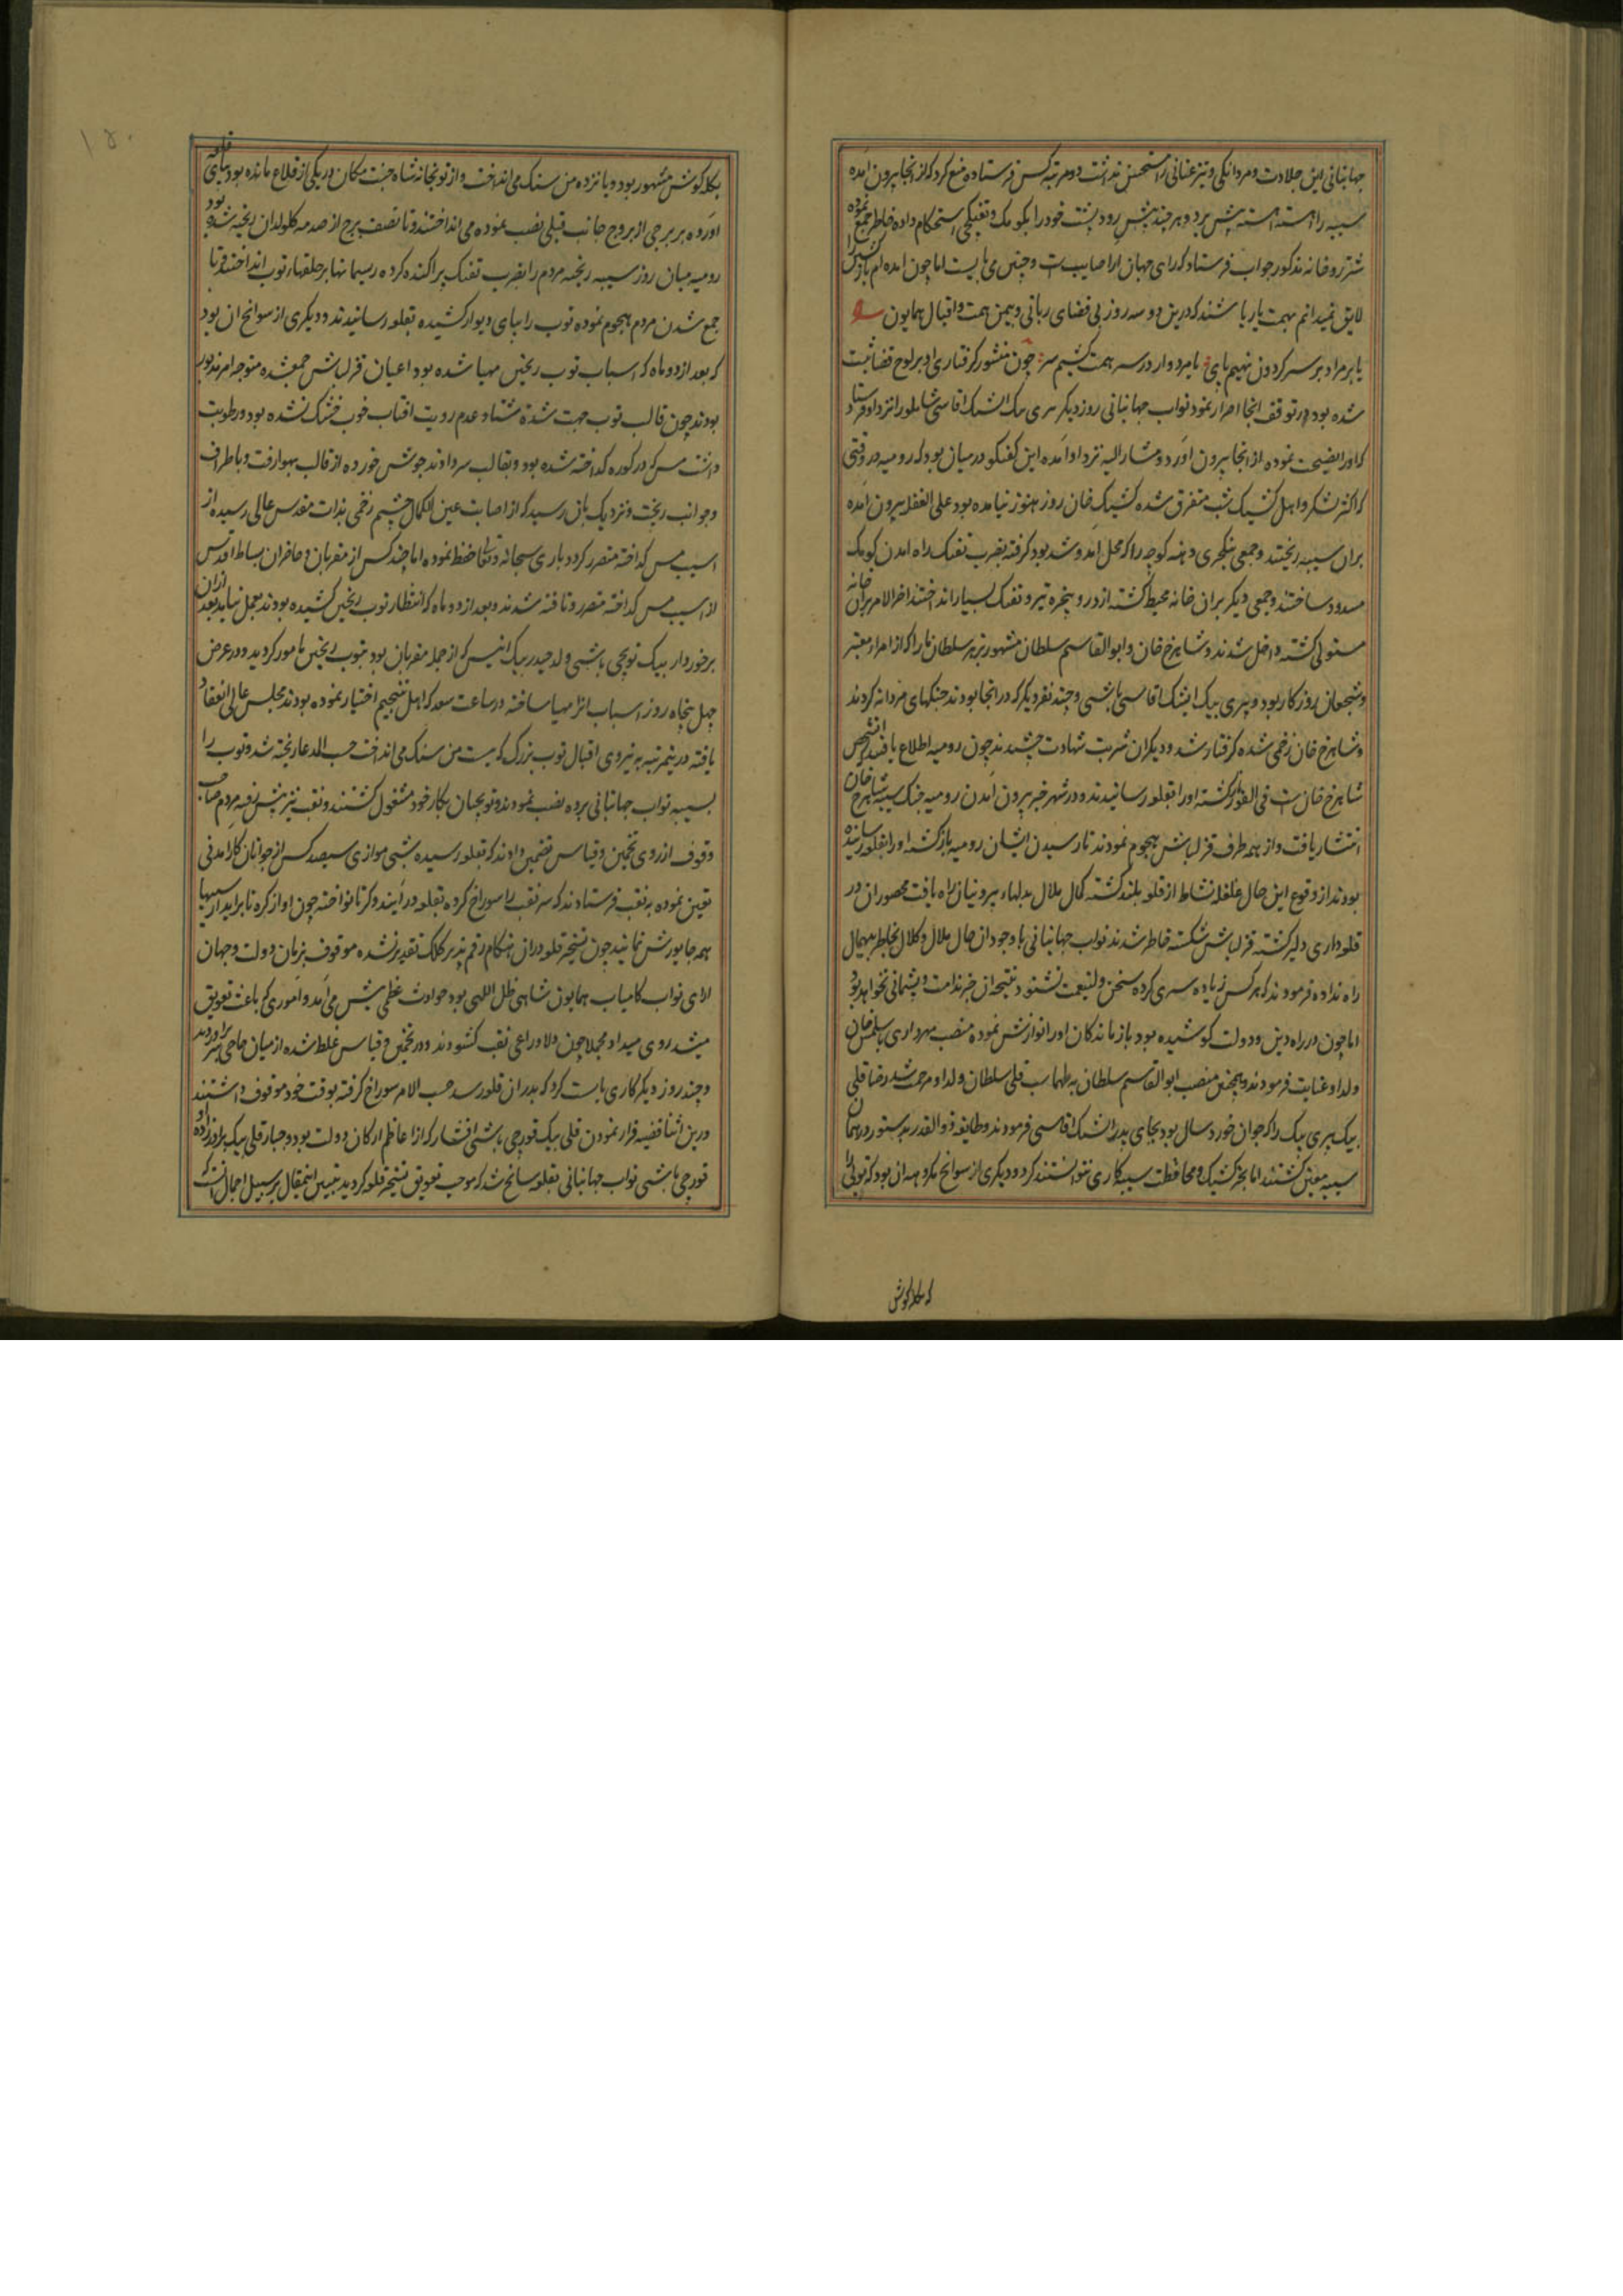 جهانبانی این جلادت و مردانکی و تیزعنانی را مستحسن نداشت دو مرتبه کس فرستاده منع کرد که از انجا بیرون آمده
سیبه را اهسته اهسته پیش برد و هر چند پیش رود پشت خود را بکومک و تفنکچی استحکام داده خاطر جمع نموده
شاهرخ خان مذکور جواب فرستاد که رای جهان ارا صایبست و چنین می بایست اما چون امده ام باز کشتن را
لایق نمیدانم بهمت یار باشند که درین دو سه روز بی قضای ربانی و بیمن همت و اقبال همایون
یا بر مراد بر سر کردون نهیم پای یا مردوار در سر همت کنیم سر چون منشور کرفتاری او بر لوح قضا ثبت
شده بود در توقف انجا اصرار نمود نواب جهانبانی روز دیکر پری بیک ایشک اقاسی شاملو را نزد او فرستاد
که اورا نصیحت نموده از انجا بیرون اورد و مشار الیه نزد او امده این کفتکو در میان بود که رومیه در وقتی
که اکثر لشکر و اهل کشیک شب متفرق شده کشیک خان روز هنوز نیامده بود علی الغفله بیرون امده
بران سیبه ریختند و جمعی ینکچری دهنه کوچه را که محل امد و شد بود کرفته بضرب تفنک راه امدن کومک
مسدود ساختند و جمعی دیکر بران خانه محیط کشته از در و پنجره تیر و تفنک بسیار انداختند اخر الامر بران خانه
مستولی کشته داخل شدند و شاهرخ خان و ابوالقاسم سلطان مشهور به سلطان را که از امراء معتبر
و شجعان روزکار بود و پیری بیک ایشک اقاسی باشی و چند نفر دیکر که در انجا بودند جنکهای مردانه کردند
و شاهرخ خان زخمی شده کرفتار شد و دیکران شربت شهادت چشیدند چون رومیه اطلاع یافتند که انشخص
شاهرخ خان است فی الفور برکشته اورا بقلعه رسانیدند و در شهر خبر بیرون آمدن رومیه و جنک سیبه شاهرخ خان
انتشار یافت و از همه طرف قزلباش هجوم نمودند تا رسیدن ایشان رومیه باز کشته اورا بقلعه رسانیده
بودند از وقوع این حال غلغله نشاط از قلعه بلند کشته کمال ملال بدلهاء بیرونیان راه یافت محصوران در
قلعه داری دلیر کشته قزلباش شکسته خاطر شدند نواب جهانبانی با وجود ان حال ملال و کلال بخاطر بیهمال
راه نداده فرمودند که هر کس زیاده سری کرده سخن ولینعمت نشنود نتیجه ان جز ندامت و پشیمانی نخواهد بود
اما چون در راه دین و دولت کوشیده بود بازماندکان اورا نوازش نموده منصب مهرداری باسلمش خان
ولد او عنایت فرمودند و همچنین منصب ابوالقاسم سلطان به طهماسب قلی سلطان ولد او مرحمت شد رضا قلی
بیک پیری بیک را که جوان خورد سال بود بجای پدر ایشک اقاسی فرمودند و طایفه ذوالقدر بدستور در همان
سیبه معین کشتند اما بجز کشیک و محافظت سیبه کاری نتوانستند کرد و دیکری از سوانح مکروهه ان بود که توپی را
که بکله کوش
بکله کوش مشهور بود و پانزده من سنک می انداخت و از توپخانه شاه جنت مکان در یکی از قلاع مانده بود بپای قلعه
اورده بر برجی از بروج جانب قبلی نصب نموده می انداختند و تا نصف برج از صدمه کلوله ان ریخته شده بود
رومیه میان روز بسیبه ریخته مردم را بضرب تفنک پراکنده کرده ریسمانها بر حلقهاء توپ انداختند و تا
جمع شدن مردم هجوم نموده توپ را بپای دیوار کشیده بقلعه رسانیدند و دیکری از سوانح ان بود
که بعد از دو ماه که اسباب توپ ریختن مهیا شده بود اعیان قزلباش جمعشده متوجه امر مذکور
بودند چون قالب توپ جهت شدة شتا و عدم رویت افتاب خوب خشک نشده بود و رطوبت
داشت مس که در کوره کداخته شده بود و بقالب سر دادند جوش خورده از قالب بهوا رفت و باطراف
و جوانب ریخت و نزدیک بان رسید که از اصابت عین الکمال چشم زخمی بذات مقدس عالی رسیده از
اسیب مس کداخته متضرر کردد باری سبحانه و تعالی حفظ نموده اما چند کس از مقربان و حاضران بساط اقدس
از اسیب مس کداخته متضرر و تافته شدند و بعد از دو ماه که انتظار توپ ریختن کشیده بودند بعمل نیامد بعد ازان
برخوردار بیک توپچی باشی ولد حیدر بیک انیس که از جمله مقربان بود بتوپ ریختن مامور کردید و در عرض
چهل پنجاه روز اسباب انرا مهیا ساخته در ساعت سعد که اهل تنجیم اختیار نموده بودند مجلس عالی انعقاد
یافته درینمرتبه به نیروی اقبال توپ بزرک که بیست من سنک می انداخت حسب المدعا ریخته شد و توپ را
بسیبه نواب جهانبانی برده نصب نمودند و توپچیان بکار خود مشغول کشتند و نقب نیز پیش رفته مردم صاحب
وقوف از روی تخمین و قیاس تضمین دادند که بقلعه رسیده شبی موازی سیصد کس از جوانان کارامدنی
تعین نموده به نقب فرستادند که سر نقب را سوراخ کرده بقلعه درایند و کرنا نواخته چون اواز کره نا براید از سیبها
همه جا یورش نمایند چون تسخیر قلعه دران هنکام رقم پذیر کلک تقدیر نشده موقوف بزمان دولت و جهان
ارای نواب کامیاب همایون شاهی ظل اللهی بود حوادث عظمی پیش می آمد و اموری که باعث تعویق
میشد روی میداد مجملا چون دلاوران سر نقب کشودند در تخمین و قیاس غلط شده از میان حاجی سر برآوردند
و چند روز دیکر کاری بایست کرد که بدران قلعه رسد حسب الامر سوراخ کرفته بوقت خود موقوف داشتند
درین اثنا قضیه فرار نمودن قلی بیک قورچی باشی افشار که از اعاظم ارکان دولت بود و جبار قلی بیک برادرزاده او
قورچی باشی نواب جهانبانی بقلعه سانح شد که موجب تعویق تسخیر قلعه کردید تبیین اینمقال بر سبیل اجمال انست که
۱۵۰